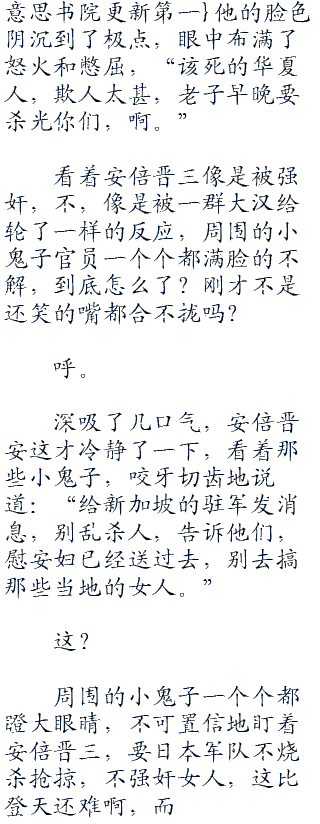 意思书院更新第一}他的脸色
阴沉到了极点，眼中布满了
怒火和憋屈，“该死的华夏
人，欺人太甚，老子早晚要
杀光你们，啊。”
看着安倍晋三像是被强
奸，不，像是被一群大汉给
轮了一样的反应，周围的小
鬼子官员一个个都满脸的不
解，到底怎么了？刚才不是
还笑的嘴都合不拢吗？
呼。
深吸了几口气，安倍晋
安这才冷静了一下，看着那
些小鬼子，咬牙切齿地说
道：“给新加坡的驻军发消
息，别乱杀人，告诉他们，
慰安妇已经送过去，别去搞
那些当地的女人。”
这？
周围的小鬼子一个个都
瞪大眼睛，不可置信地盯着
安倍晋三，要日本军队不烧
杀抢掠，不强奸女人，这比
登天还难啊，而